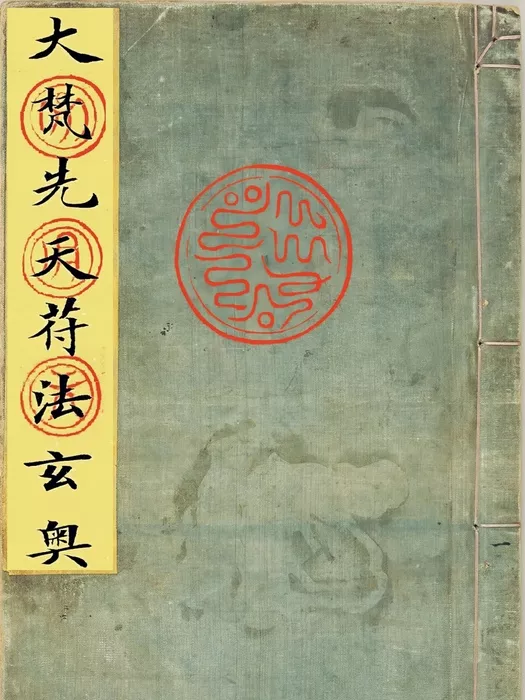 大梵先天苻法玄奥
一